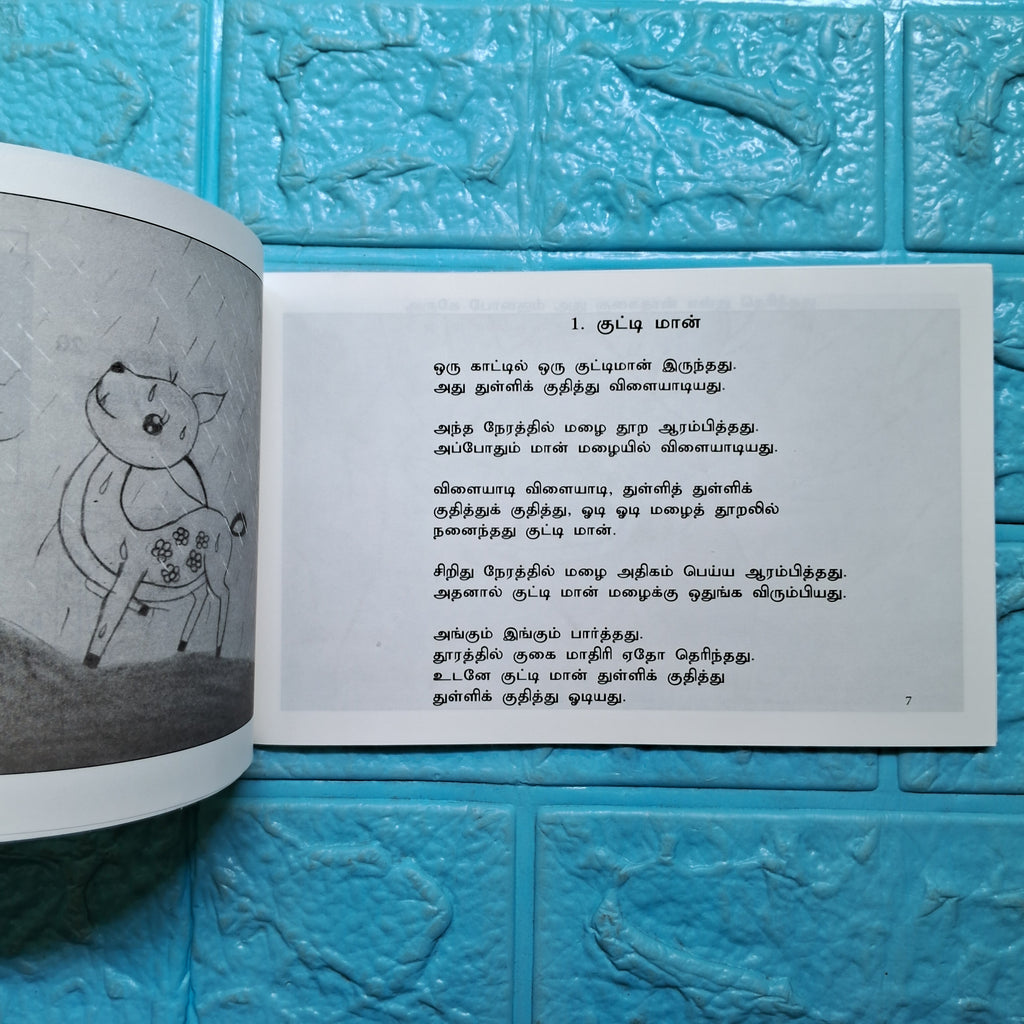 1. குட்டி மான்
ஒரு காட்டில் ஒரு குட்டிமான் இருந்தது.
அது துள்ளிக் குதித்து விளையாடியது.
அந்த நேரத்தில் மழை தூற ஆரம்பித்தது.
அப்போதும் மான் மழையில் விளையாடியது.
விளையாடி விளையாடி, துள்ளித் துள்ளிக்
குதித்துக் குதித்து, ஓடி ஓடி மழைத் தூறலில்
நனைந்தது குட்டி மான்.
சிறிது நேரத்தில் மழை அதிகம் பெய்ய ஆரம்பித்தது.
அதனால் குட்டி மான் மழைக்கு ஒதுங்க விரும்பியது.
அங்கும் இங்கும் பார்த்தது.
தூரத்தில் குகை மாதிரி ஏதோ தெரிந்தது.
உடனே குட்டி மான் துள்ளிக் குதித்து
துள்ளிக் குதித்து ஓடியது.
7